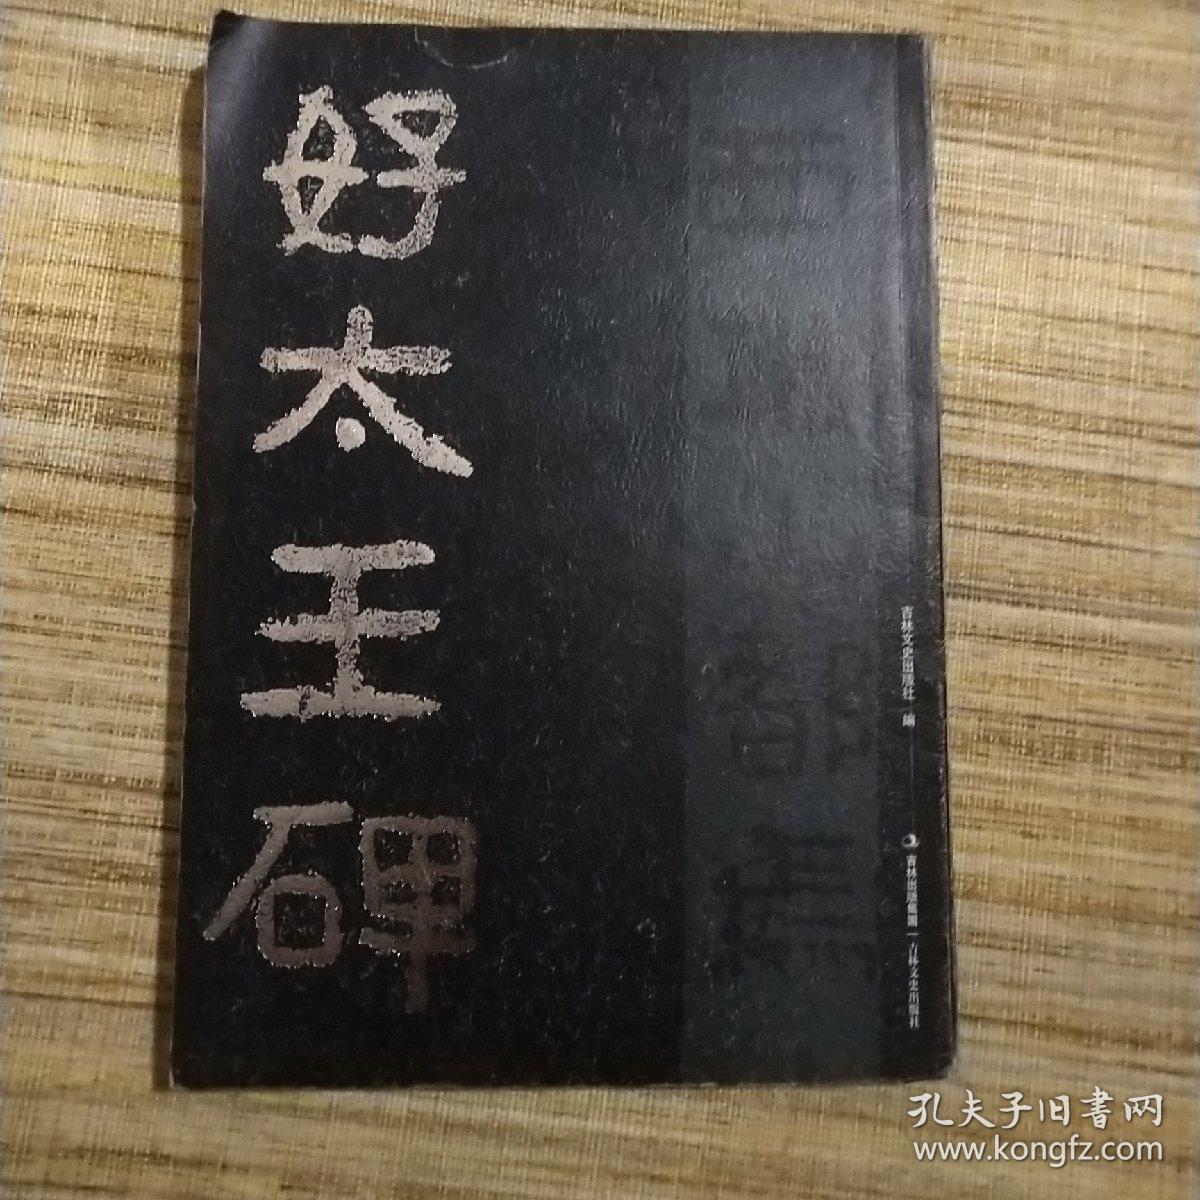 好太王碑
吉林文史出版社 编
吉林出版集团 | 吉林文史出版社
孔夫子旧書网
www.kongfz.com